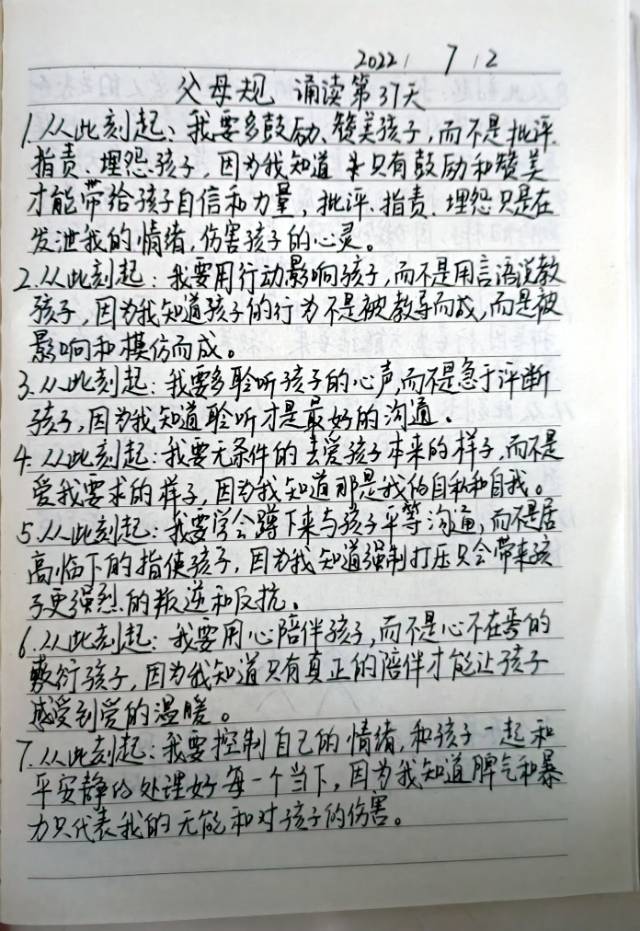 2022 7 2
父母规 诵读第37天
1.从此刻起、我要多鼓励、赞美孩子,而不是批评.
指责、埋怨孩子,因为我知道只有鼓励和赞美
才能带给孩子自信和力量,批评、指责、埋怨只是在
发泄我的情绪,伤害孩子的心灵。
2.从此刻起:我要用行动影响孩子,而不是用言语说教
孩子,因为我知道孩子的行为不是被教导而成,而是被
影响和模仿而成。
3.从此刻起:我要多聆听孩子的心声,而不是急于评断
孩子,因为我知道聆听才是最好的沟通。
4.从此刻起:我要无条件的去爱孩子本来的样子,而不是
爱我要求的样子,因为我知道那是我的自私和自我。
5.从此刻起:我要学会蹲下来与孩子平等沟通,而不是居
高临下的指使孩子,因为我知道强制打压只会带来孩
子更强烈的叛逆和反抗。
6.从此刻起:我要用心陪伴孩子,而不是心不在焉的
敷衍孩子,因为我知道只有真正的陪伴才能让孩子
感受到爱的温暖。
7.从此刻起:我要控制自己的情绪,和孩子一起和
平安静的处理好每一个当下,因为我知道脾气和暴
力只代表我的无能和对孩子的伤害。